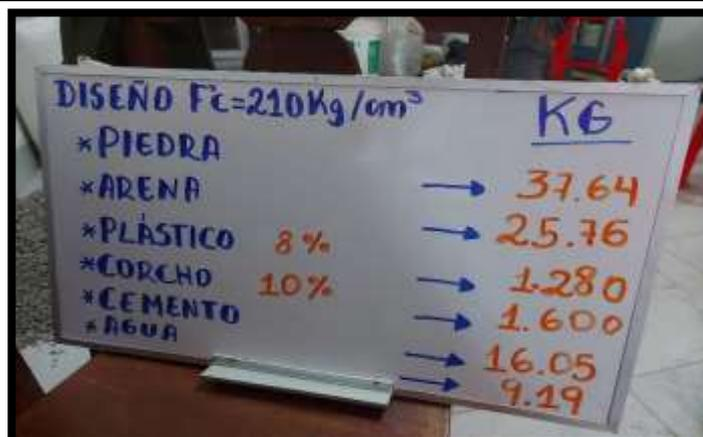 DISEÑO F'c=210Kg/cm³ KG
*PIEDRA → 37.64
*ARENA → 25.76
*PLÁSTICO 8% → 1.280
*CORCHO 10% → 1.600
*CEMENTO → 16.05
*AGUA → 9.19